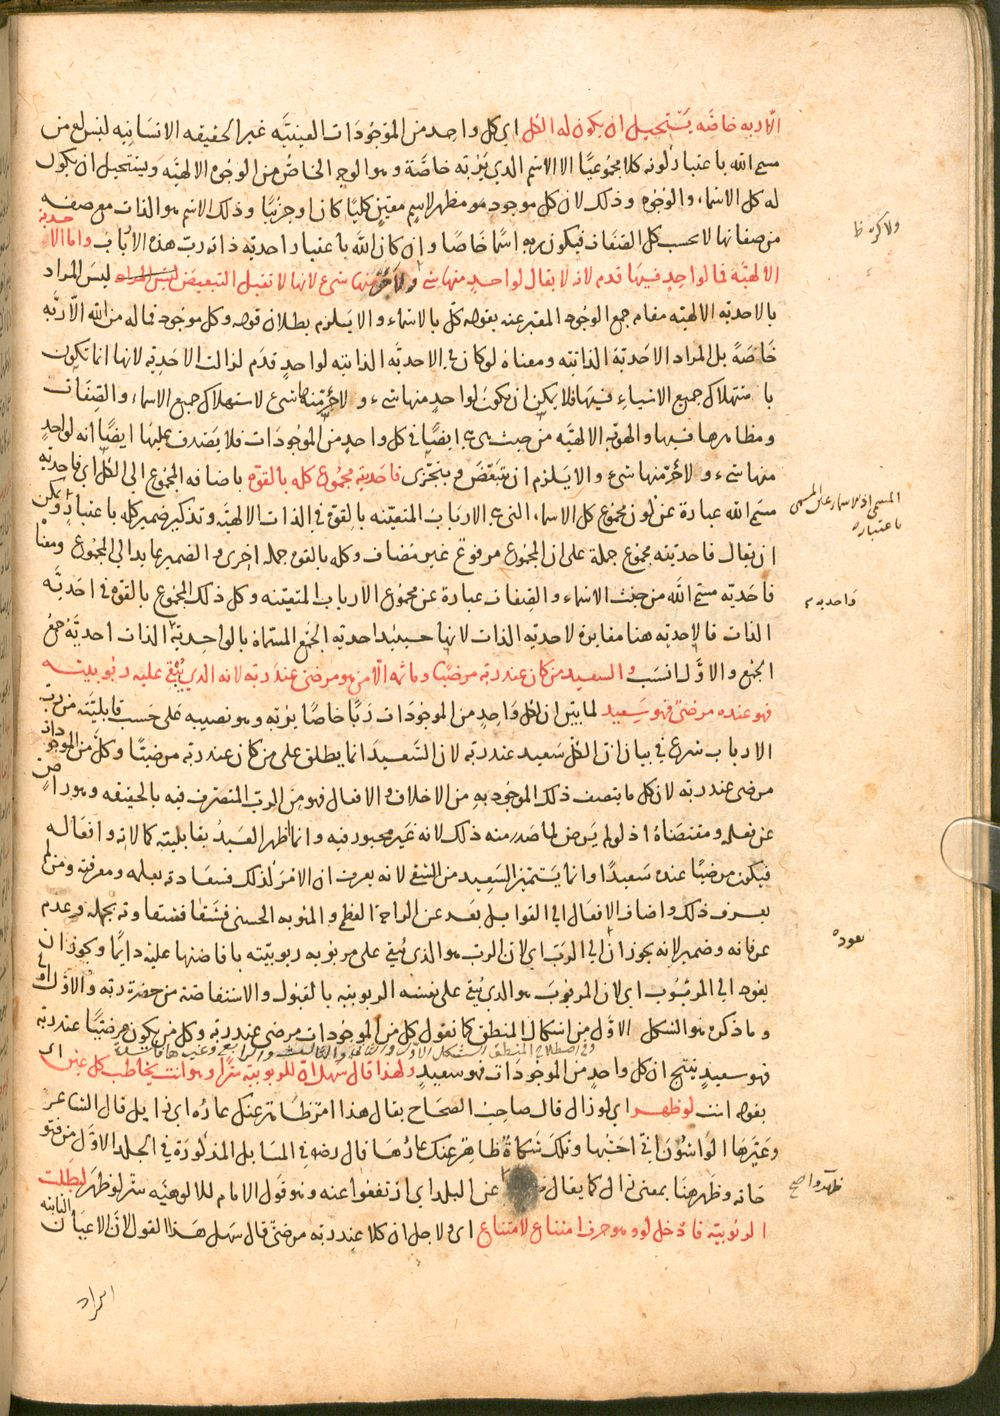 الا ربه خاصة يستحيل ان يكون له الكل اى كل واحد من الموجودات العينية غير الحقيقه الانسانيه ليس له من
مسمى الله باعتبار كونه كلا مجموعيا الا الاسم الذى يربه خاصة وهو الوجه الخاص من الوجوه الالهية ويستحيل ان يكون
له كل الاسماء والوجوه وذلك لان كل موجود هو مظهر لاسم معين كليا كان او جزئيا وذلك الاسم هو الذات مع صفه
من صفاتها لا بحسب كل الصفات فيكون ربه اسما خاصا وان كان الله باعتبار احديته ذاته رب هذه الارباب واما الاحدية
الالهية فما لواحد فيها قدم لانه لا يقال لواحد منها شئ ولآخر منها شئ لانها لا تقبل التبعيض ليس المراد
بالاحديه الالهيه مقام جمع الوجود المعبر عنه بقوله كل بالاسماء والا يلزم بطلان قوله وكل موجود فما له من الله الا ربه
خاصة بل المراد الاحدية الذاتيه ومعناه لو كان فى الاحدية الذاتيه لواحد قدم لزالت الاحديه لانها انما تكون
باستهلاك جميع الاشياء فيها فلا يمكن ان يكون لواحد منها شئ ولآخر منها شئ لاستهلاك جميع الاسماء والصفات
ومظاهرها فيها والهوية الالهيه من حيث هى هى ايضا فى كل واحد من الموجودات فلا يصدق عليها ايضا انه لواحد
منها شئ ولآخر منها شئ والا يلزم ان تتبعض وتتجزى فاحديته مجموع كله بالقوة باضافه المجموع الى الكل اى فاحديه
مسمى الله عبارة عن كون مجموع كل الاسماء التى هى الارباب المتعينه بالقوة فى الذات الالهية وتذكير ضمير كله باعتبار ويمكن
ان يقال فاحديته مجموع جملة على ان المجموع مرفوع غير مضاف وكله بالقوه جمله اخرى والضمير عايد الى المجموع ومعناه
فاحديه مسمى الله من حيث الاسماء والصفات عبارة عن مجموع الارباب المتعينه وكل ذلك المجموع بالقوة فى احدية
الذات فالاحديه هنا مغايرة لاحديه الذات لانها حينئذ احديه الجمع المسماة بالواحديه الذات احدية جمع
الجمع والاول انسب والسعيد من كان عند ربه مرضيا وما ثمه الا من هو مرضى عند ربه لانه الذى يبقى عليه ربوبيته
فهو عنده مرضى فهو سعيد لما بين ان لكل واحد من الموجودات ربا خاصا يربه وهو نصيبه على حسب قابليته من رب
الارباب شرع فى بيان ان الكل سعيد عند ربه لان السعيد انما يطلق على من كان عند ربه مرضيا وكل من الموجودات
مرضى عند ربه لان كل ما يتصف ذلك الموجود به من الاخلاق والافعال فهو من الرب المتصرف فيه بالحقيقه وهو راض
عن فعله ومقتضاه اذ لو لم يرض لما صدر منه ذلك لانه غير مجبور فيه وانما اظهر العبد بقابليته كمالاته وافعاله
فيكون مرضيا عنده سعيدا وانما يتميز السعيد من الشقى لانه يعرف ان الامر كذلك فسعادته بعلمه ومعرفته ومن لم
يعرف ذلك واضاف الافعال الى القوابل بعد عن الراحة العظمى والمثوبه الحسنى فشقا فشقاوته بجهله وعدم
عرفانه وضمير لانه يجوز ان الى الرب اى لان الرب هو الذى يبقى على مربوبه ربوبيته بافاضتها عليه دايما ويجوز ان
يعود الى المربوب اى لان المربوب هو الذى يبقى على نفسه الربوبيه بالقبول والاستفاضة من حضرة ربه والاول اولى
وما ذكره هو الشكل الاول من اشكال المنطق كما نقول كل من الموجودات مرضى عند ربه وكل من يكون مرضيا عند ربه
وفى اصطلاح المنطق الشكل الاول والثانى والثالث والرابع وغيرها
فهو سعيد ينتج ان كل واحد من الموجودات فهو سعيد ولهذا قال سهل ان للربوبية سرا وهو انت يخاطب كل عين
بقوله انت لو ظهر اى لو زال قال صاحب الصحاح يقال هذا امر ظاهر عنك عاره اى زايل قال الشاعر
وعيرها الواشون انى احبها وتلك شكاة ظاهر عنك عارها قال رضه فى المسايل المذكورة فى المجلد الاول من فتو
حاته وظهر هنا بمعنى زال كما يقال عن البلد اى ارتفعوا عنه وهو قول الامام للالوهيه سر لو ظهر لبطلت
الربوبية فادخل لو وهو حرف امتناع لامتناع اى لاجل ان كلا عند ربه مرضى قال سهل هذا القول لان الاعيان الثابته
ولآخر ظ
المسمى اذ الاسماء على المسمى
باعتباره
واحديه م
يعود
ظهروا صح
المراد